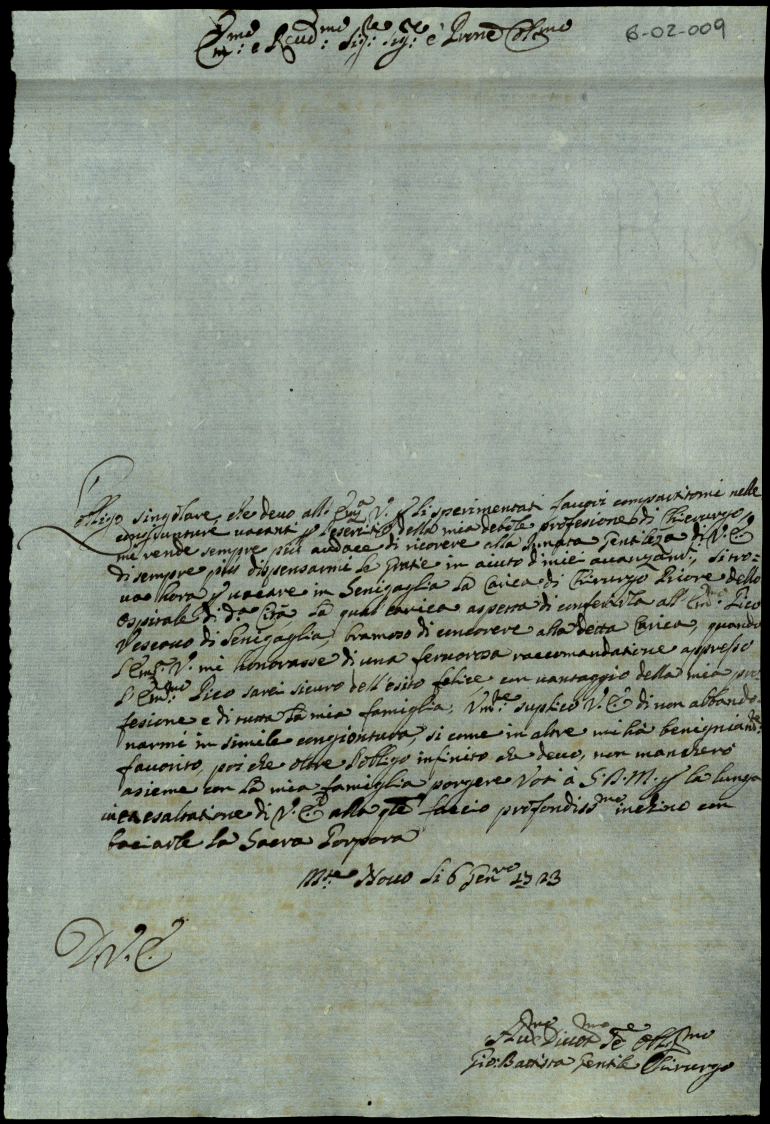 Em.mo e Reud.mo Sig.re Sig.re e Prone Col.mo
6-02-009
L'obligo singolare, che deuo all' Em.a V. p li sperimentati fauori compartitomi nelle
congiunture uacanti p l'esercitio della mia debole profesione di Chierurgo,
mi rende sempre più audace di ricorere alla Innata Gentileza di V. E.
di sempre più dispensarmi le gratie in aiuto d' miei auanzam.ti, si tro-
ua hora p uacare in Senigaglia la Carica di Chirurgo Priore dello
Ospitale di d.a Città la qual carica aspetta di conferirla all' Em.mo Pico
Vescouo di Senigaglia, bramoso di concorere alla detta Carica, quando
l'Em.a V. mi honorasse di una feruorosa raccomandatione appresso
l'Em.mo Pico sarei sicuro dell'esito felice con uantaggio della mia pro-
fesione e di tutta la mia famiglia, Vm.te suplico V. E. di non abbando-
narmi in simile congiontura, si come in altre mi hà benigniam.te
fauorito, poi che oltre l'obligo infinito che deuo, non mancherò
asieme con la mia famiglia porgere Voti à S. D. M. p la lunga
esaltatione di V. E. alla q.le faccio profondiss.mo inchino con
baciarle la Sacra Porpora
M.te Nouo li 6 Gen.ro 1723
D. V. E.
Hu.mo Diuot.mo Se.re Obl.mo
Gio: Battista Gentile Chirurgo